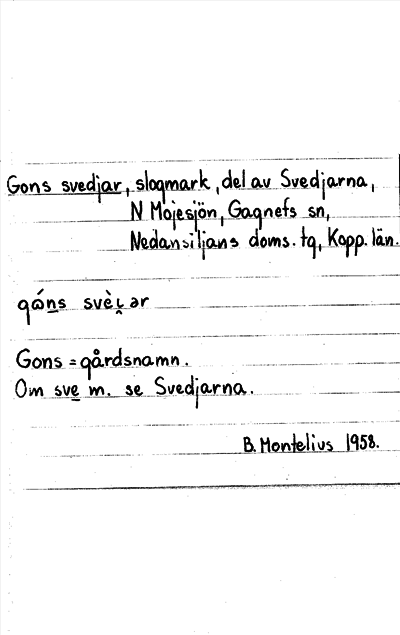 Gons svedjar, slogmark, del av Svedjarna,
N Mojesjön, Gagnefs sn,
Nedansiljans doms. tg, Kopp. län.
gώn̲s svè̯ɩ ər
Gons = gårdsnamn.
Om sve m. se Svedjarna.
B. Montelius 1958.